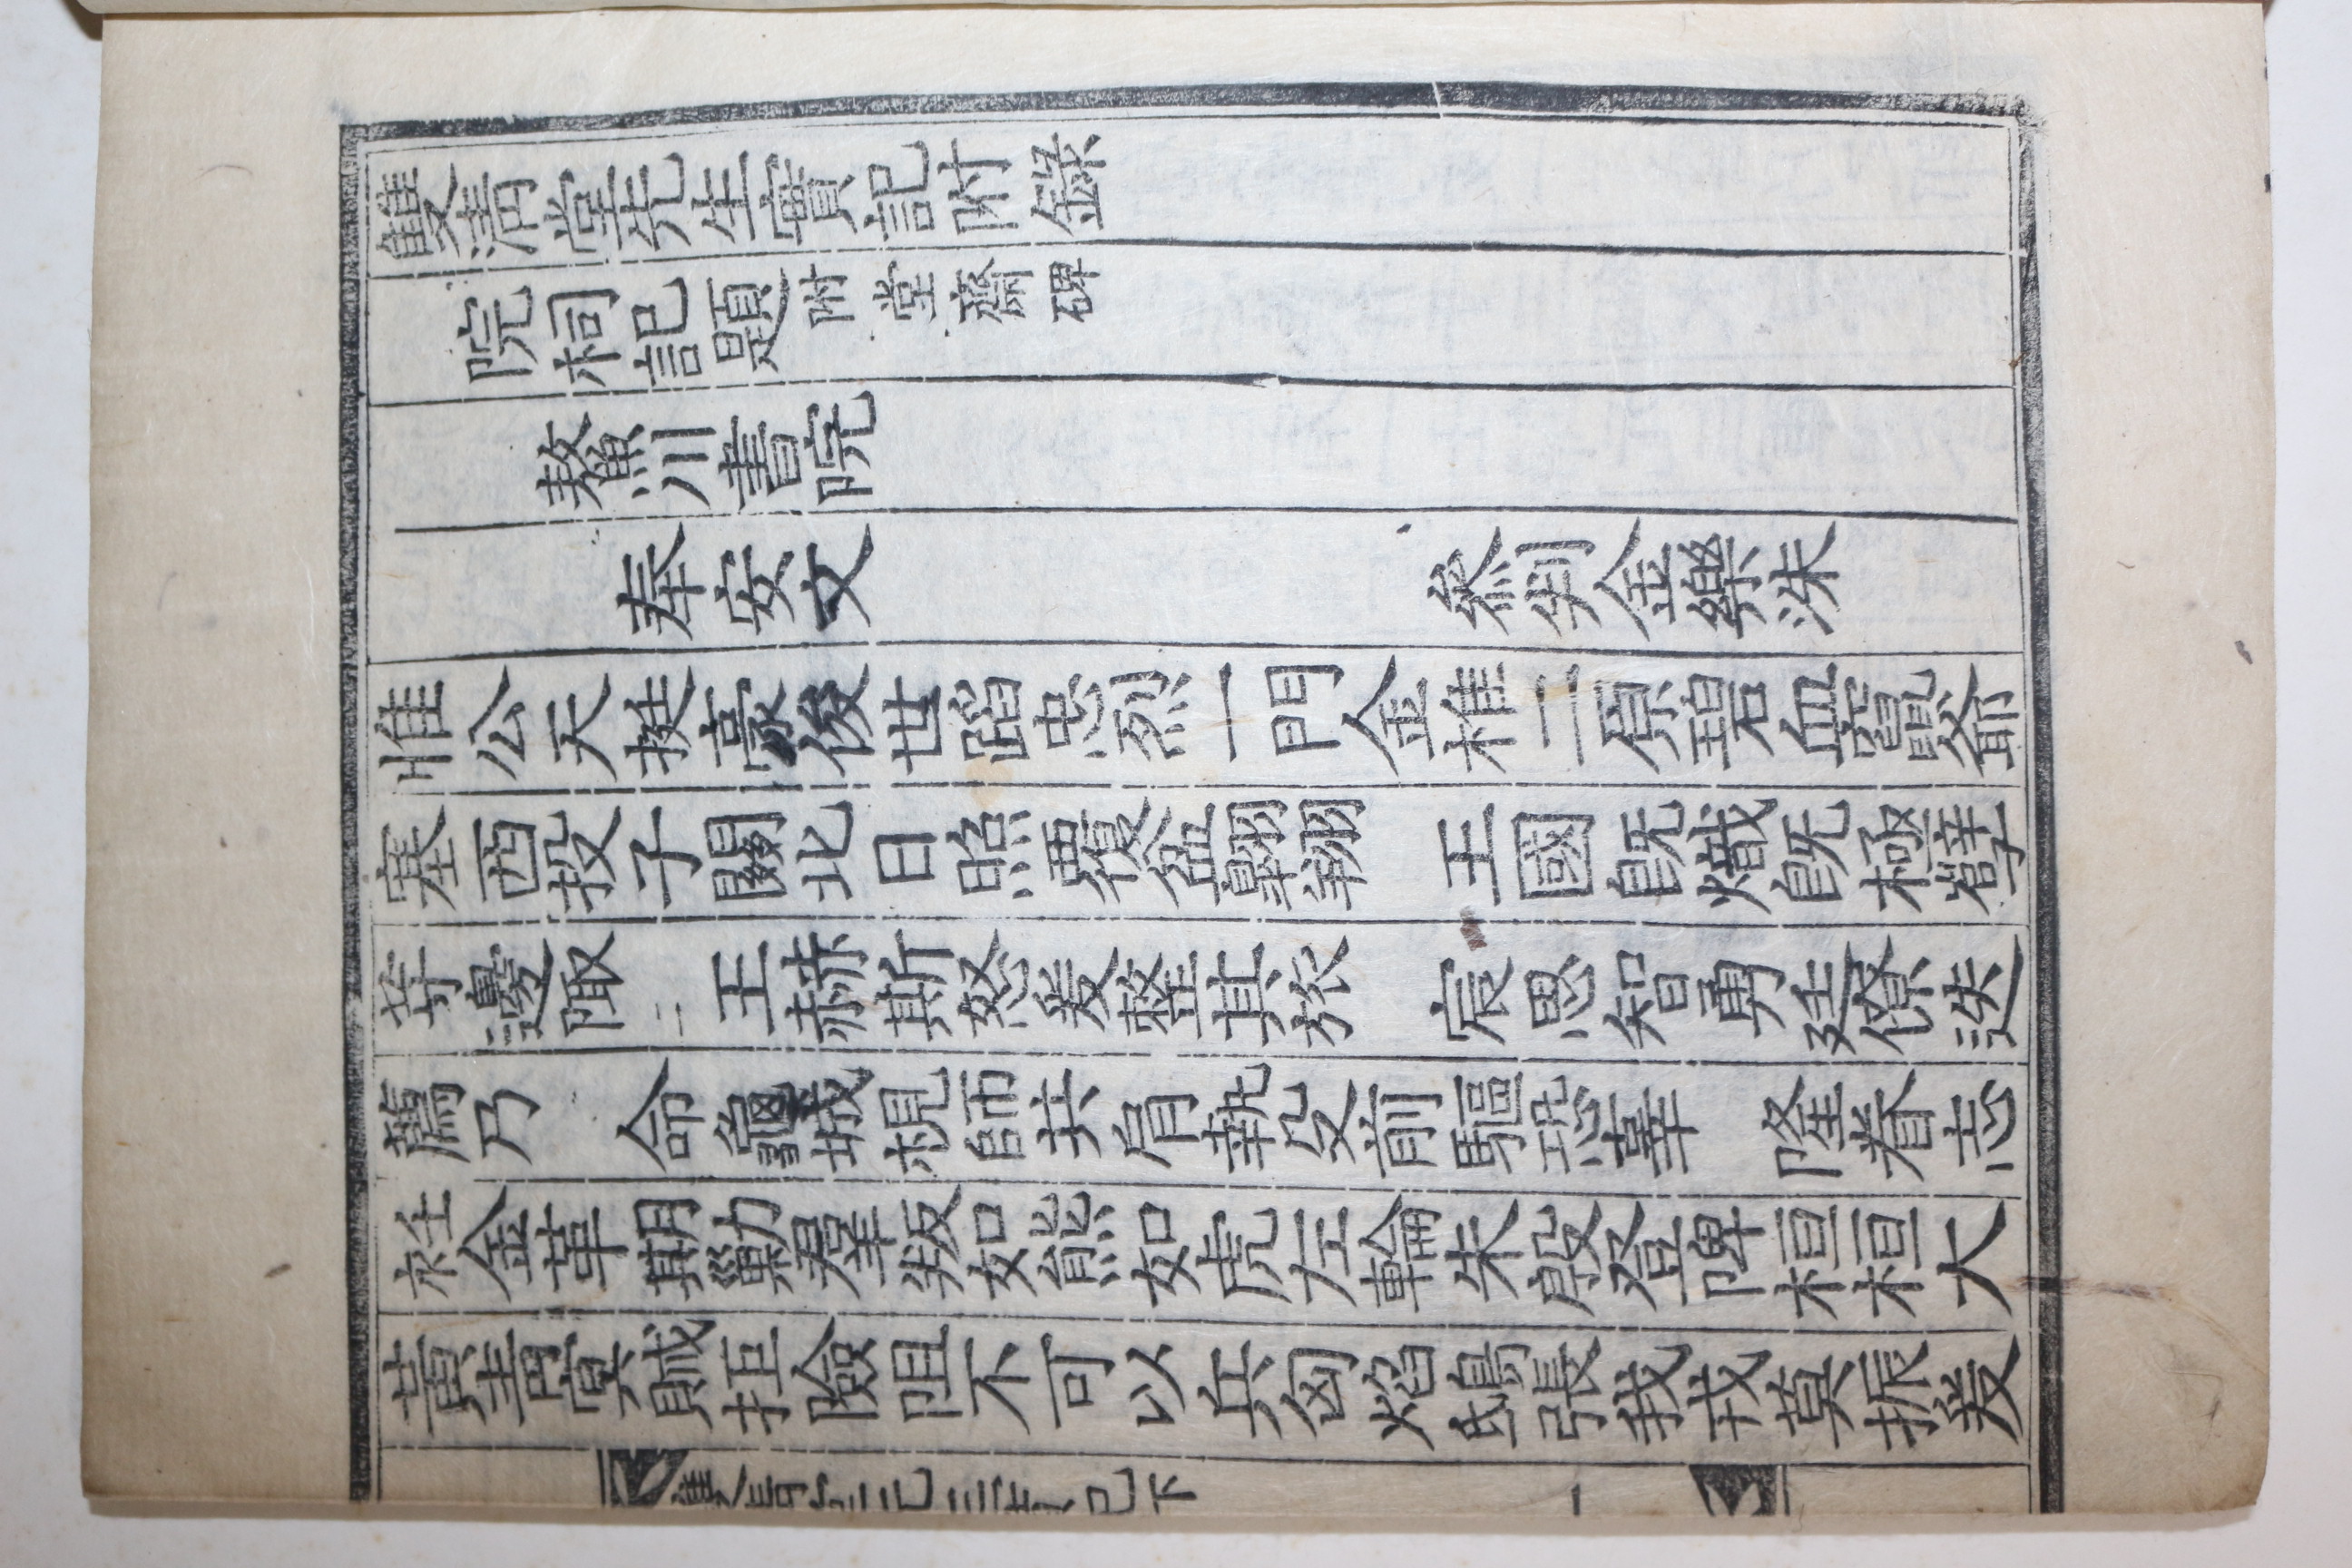 雙淸堂先生實記附錄
院祠記題附堂齋碑
鰲川書院
奉安文 叅判金樂洙
惟公天挺豪俊世蹈忠烈一門金椎二原碧血竄爺
塞西投子關北日照覆盆翺翔 王國旣熾旣極孼
芽邊陬 王赫斯怒爰整其旅 宸思智勇廷僚迭
薦乃 命龜城視師共肩執殳前驅恐辜 隆眷志
衽金革期勦羣叛如熊如虎左輪朱殷登陴桓桓大
黃靑㝠賊拒險阻不可以兵匈焰鴟張我戎莫振爰
一